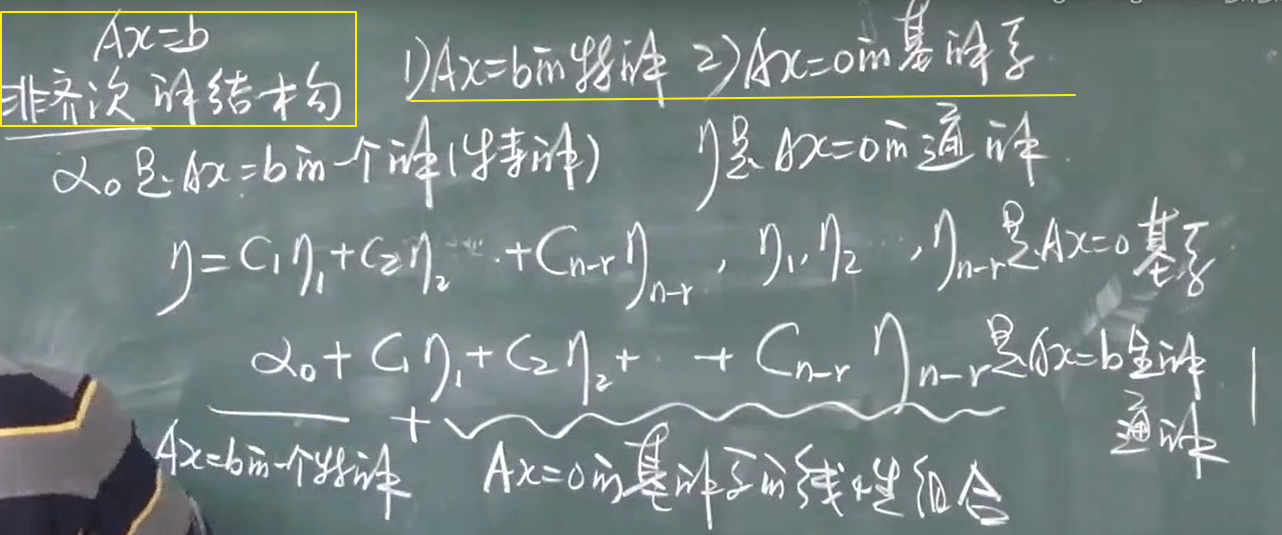 Ax=b
非齐次解结构
1) Ax=b的特解 2) Ax=0的基解系
α₀是Ax=b的一个解(特解) η是Ax=0的通解
η=C₁η₁+C₂η₂ ⋯ +Cₙ₋ᵣηₙ₋ᵣ, η₁,η₂ ,ηₙ₋ᵣ是Ax=0基系
α₀+C₁η₁+C₂η₂+⋯+Cₙ₋ᵣηₙ₋ᵣ是Ax=b全解
通解
+
Ax=b的一个特解 Ax=0的基解系的线性组合